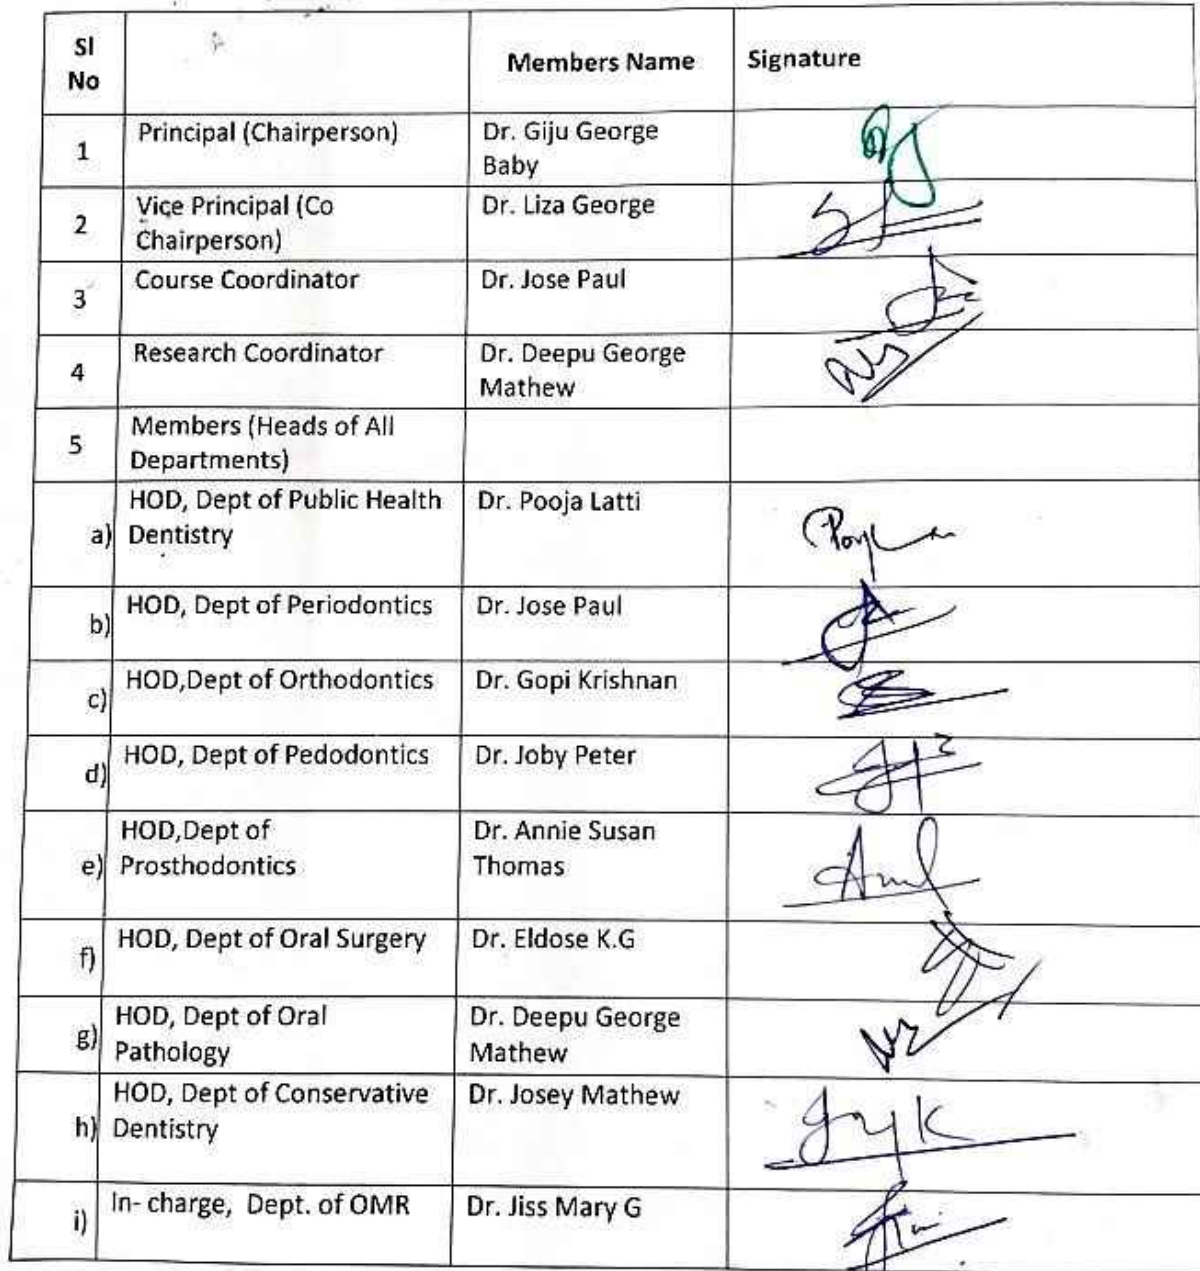 Sl
No
Members Name
Signature
1
Principal (Chairperson)
Dr. Giju George
Baby
2
Vice Principal (Co
Chairperson)
Dr. Liza George
3
Course Coordinator
Dr. Jose Paul
4
Research Coordinator
Dr. Deepu George
Mathew
5
Members (Heads of All
Departments)
a)
HOD, Dept of Public Health
Dentistry
Dr. Pooja Latti
b)
HOD, Dept of Periodontics
Dr. Jose Paul
c)
HOD,Dept of Orthodontics
Dr. Gopi Krishnan
d)
HOD, Dept of Pedodontics
Dr. Joby Peter
e)
HOD,Dept of
Prosthodontics
Dr. Annie Susan
Thomas
f)
HOD, Dept of Oral Surgery
Dr. Eldose K.G
g)
HOD, Dept of Oral
Pathology
Dr. Deepu George
Mathew
h)
HOD, Dept of Conservative
Dentistry
Dr. Josey Mathew
i)
In- charge, Dept. of OMR
Dr. Jiss Mary G